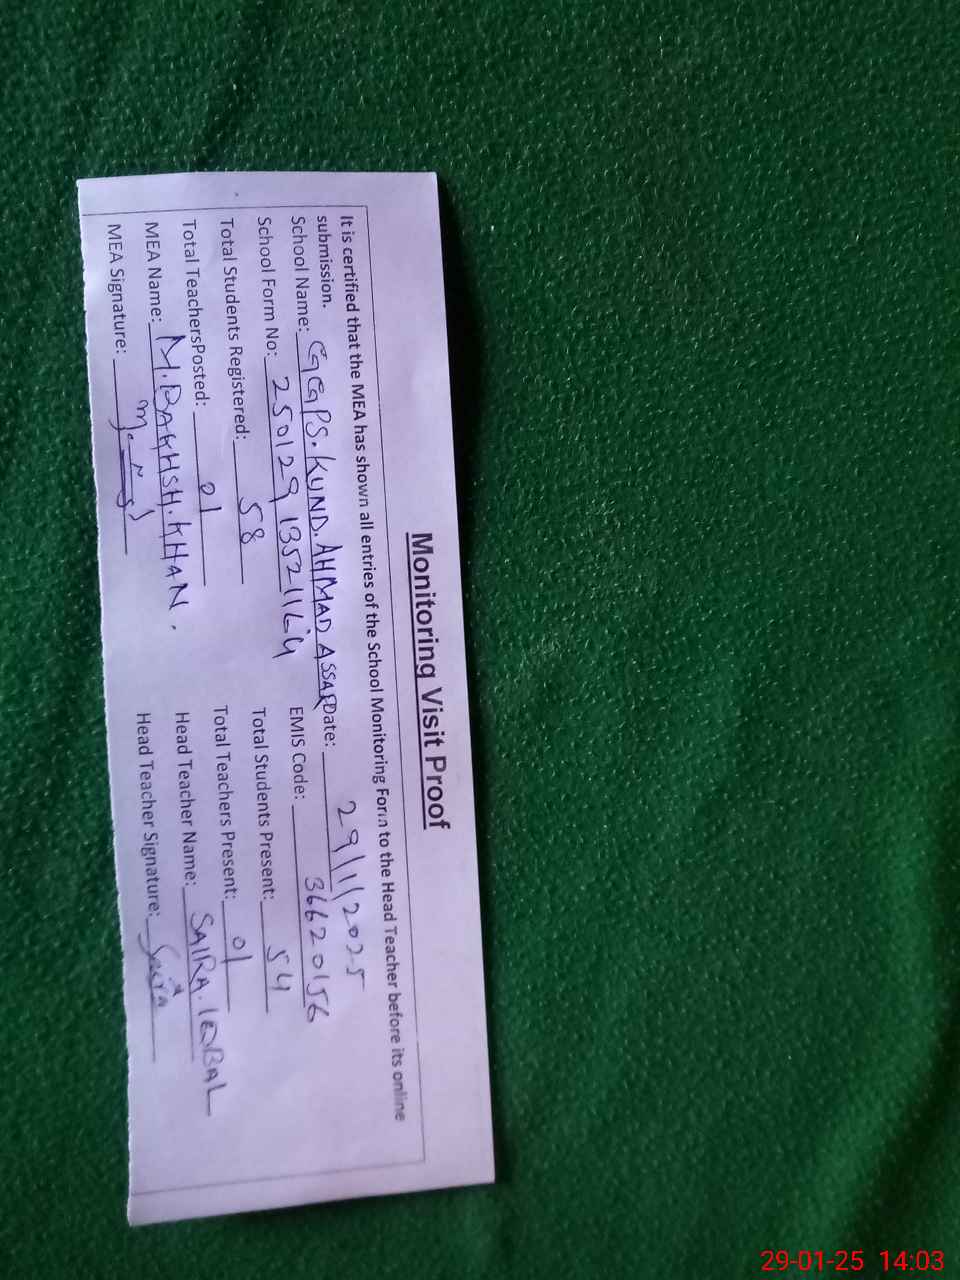 Monitoring Visit Proof
It is certified that the MEA has shown all entries of the School Monitoring Form to the Head Teacher before its online
submission.
School Name: GGPS. KUND. AHMAD ASSAR Date: 29/1/2025
School Form No: 250129 135211 EMIS Code: 36620156
Total Students Registered: 58 Total Students Present: 54
Total TeachersPosted: 01 Total Teachers Present: 01
MEA Name: M. BAKHSH. KHAN. Head Teacher Name: SAIRA. IQBAL
MEA Signature: Head Teacher Signature: Saira
29-01-25 14:03